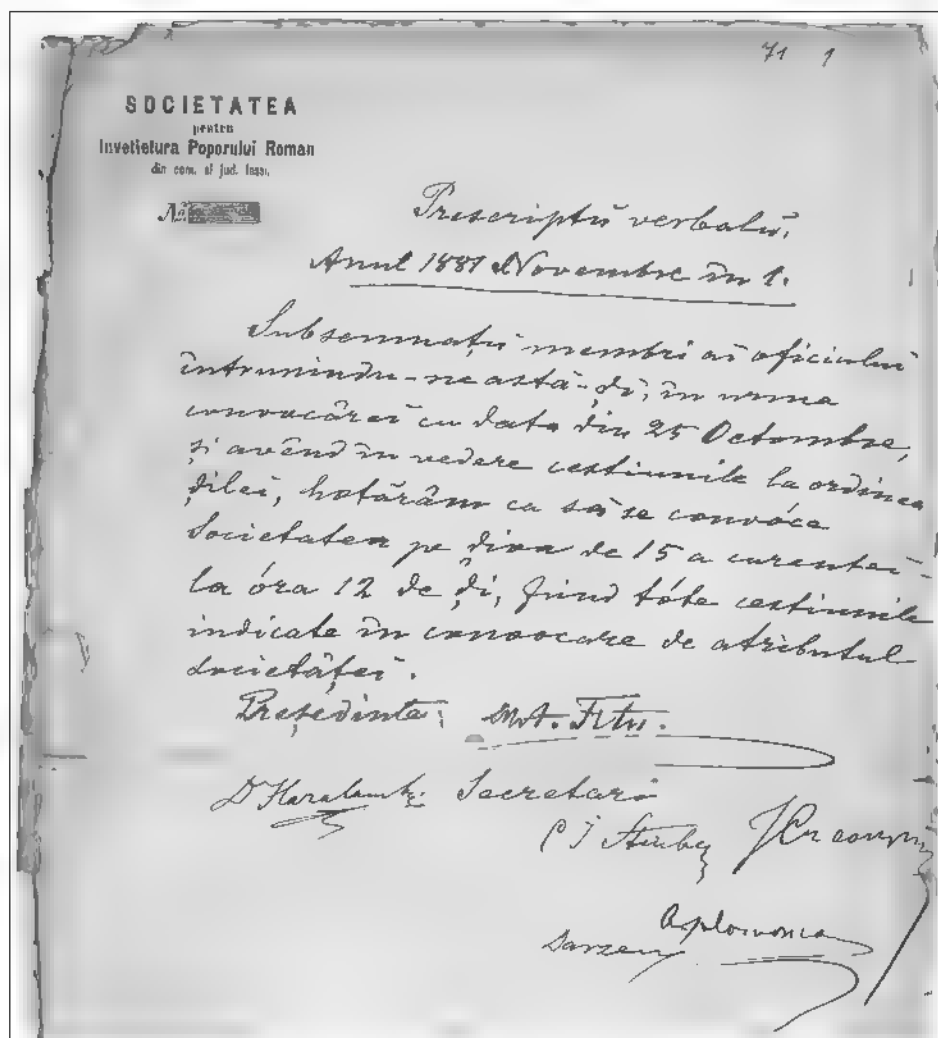 71 1
SOCIETATEA
pentru
Invetietura Poporului Roman
din com. si jud. Iassi.
No.
Prescriptŭ verbalŭ.
Anul 1881 Novembre în 1.
Subsemnații membri ai oficiului
întrunindu-ne astă-ḑi, în urma
convocărei cu data din 25 Octombre,
și avênd în vedere cestiunile la ordinea
ḑilei, hotărâm ca să se convóce
Societatea pe ḑiua de 15 a curentei
la óra 12 de ḑi, fiind tóte cestiunile
indicate în convocare de atributul
societăței.
Președinte: Fĕtu.
D Haralamb Secretari
C I Stirbey